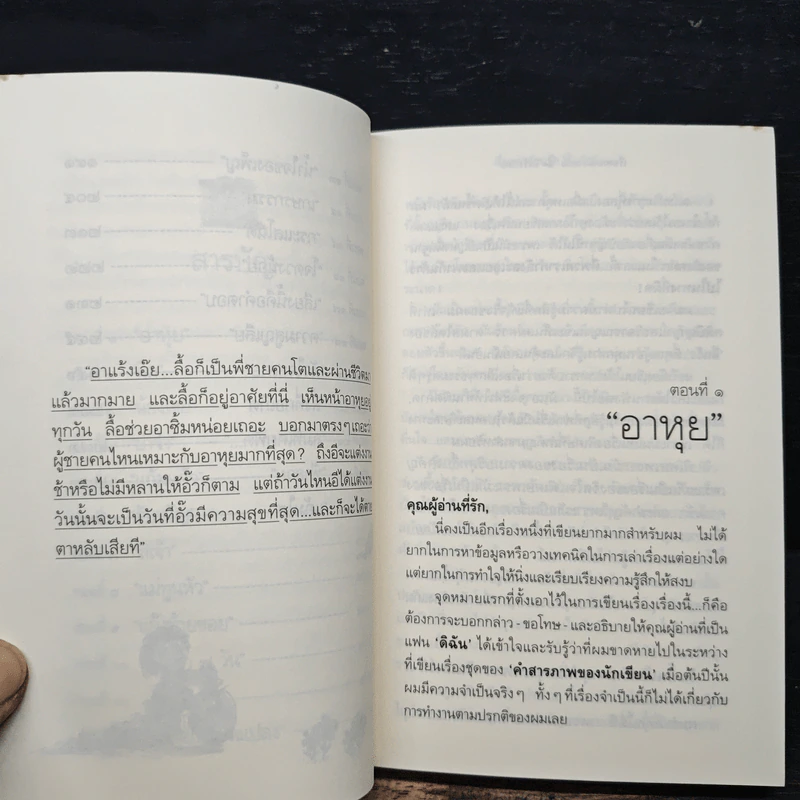 “อาแร้งเอ๊ย...ลื้อก็เป็นพี่ชายคนโตและผ่านชีวิตมา
แล้วมากมาย และลื้อก็อยู่อาศัยที่นี่ เห็นหน้าอาหุยอยู่
ทุกวัน ลื้อช่วยอาซิ้มหน่อยเถอะ บอกมาตรงๆเถอะว่า
ผู้ชายคนไหนเหมาะกับอาหุยมากที่สุด? ถึงอีจะแต่งงาน
ช้าหรือไม่มีหลานให้อั๊วก็ตาม แต่ถ้าวันไหนอีได้แต่งงาน
วันนั้นจะเป็นวันที่อั๊วมีความสุขที่สุด...และก็จะได้ตาย
ตาหลับเสียที”
ตอนที่ ๑
“อาหุย”
คุณผู้อ่านที่รัก,
นี่คงเป็นอีกเรื่องหนึ่งที่เขียนยากมากสำหรับผม ไม่ได้
ยากในการหาข้อมูลหรือวางเทคนิคในการเล่าเรื่องแต่อย่างใด
แต่ยากในการทำใจให้นิ่งและเรียบเรียงความรู้สึกให้สงบ
จุดหมายแรกที่ตั้งเอาไว้ในการเขียนเรื่องเรื่องนี้...ก็คือ
ต้องการจะบอกกล่าว - ขอโทษ - และอธิบายให้คุณผู้อ่านที่เป็น
แฟน ‘ดิฉัน’ ได้เข้าใจและรับรู้ว่าที่ผมขาดหายไปในระหว่าง
ที่เขียนเรื่องชุดของ ‘คำสารภาพของนักเขียน’ เมื่อต้นปีนั้น
ผมมีความจำเป็นจริงๆ ทั้งๆที่เรื่องจำเป็นนี้ก็ไม่ได้เกี่ยวกับ
การทำงานตามปรกติของผมเลย